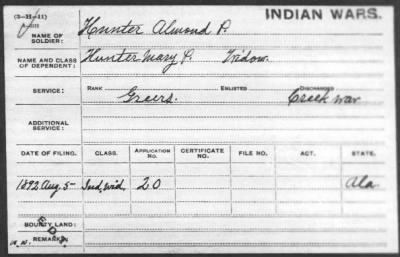 (3-H-11)
INDIAN WARS.
NAME OF SOLDIER: Hunter Almond P.
NAME AND CLASS OF DEPENDENT: Hunter Mary P. Widow.
SERVICE: RANK ENLISTED DISCHARGED
Greers. Creek War
ADDITIONAL SERVICE:
DATE OF FILING. CLASS. APPLICATION No. CERTIFICATE No. FILE NO. ACT. STATE.
1892 Aug. 5- Ind. Wid. 20 Ala.
BOUNTY LAND:
REMARKS: